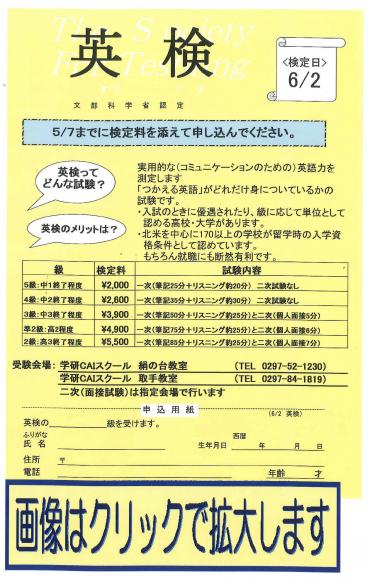 The Society
For Testing
英検
文部科学省認定
<検定日>
6/2
5/7までに検定料を添えて申し込んでください。
英検って
どんな試験?
実用的な(コミュニケーションのための)英語力を
測定します
「つかえる英語」がどれだけ身についているかの
試験です。
英検のメリットは?
・入試のときに優遇されたり、級に応じて単位として
認める高校・大学があります。
・北米を中心に170以上の学校が留学時の入学資
格条件として認めています。
もちろん就職にも断然有利です。
級 検定料 試験内容
5級:中1終了程度 ¥2,000 一次(筆記25分+リスニング約20分) 二次試験なし
4級:中2終了程度 ¥2,600 一次(筆記35分+リスニング約30分) 二次試験なし
3級:中3終了程度 ¥3,900 一次(筆記50分+リスニング約25分)と二次(個人面接5分)
準2級:高2程度 ¥4,900 一次(筆記75分+リスニング約25分)と二次(個人面接6分)
2級:高3終了程度 ¥5,500 一次(筆記85分+リスニング約25分)と二次(個人面接7分)
受験会場: 学研CAIスクール 絹の台教室 (TEL 0297-52-1230)
学研CAIスクール 取手教室 (TEL 0297-84-1819)
二次(面接試験)は指定会場で行います
申込用紙
(6/2 英検)
英検の 級を受けます。
ふりがな 西暦
氏名 生年月日 年 月 日
住所 〒
電話 年齢 才
画像はクリックで拡大します